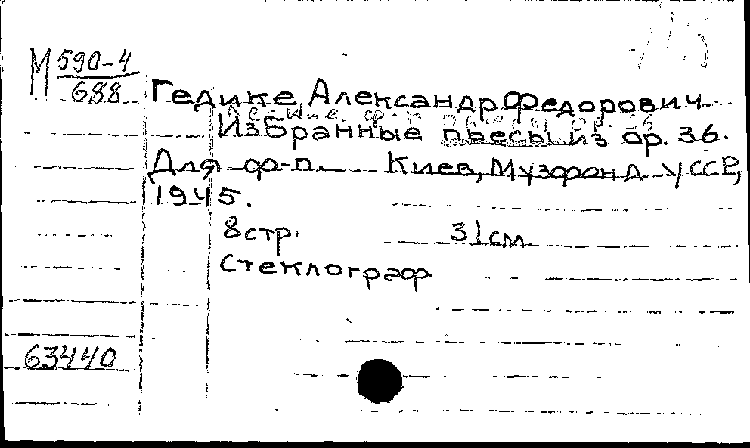 М 590-4
688
Гедике, Александр Федорович
Избранные пьесы из ор. 36.
Для ф-п. Киев, Музфонд УССР,
1945.
8 стр. 31 см
Стеклограф
63440